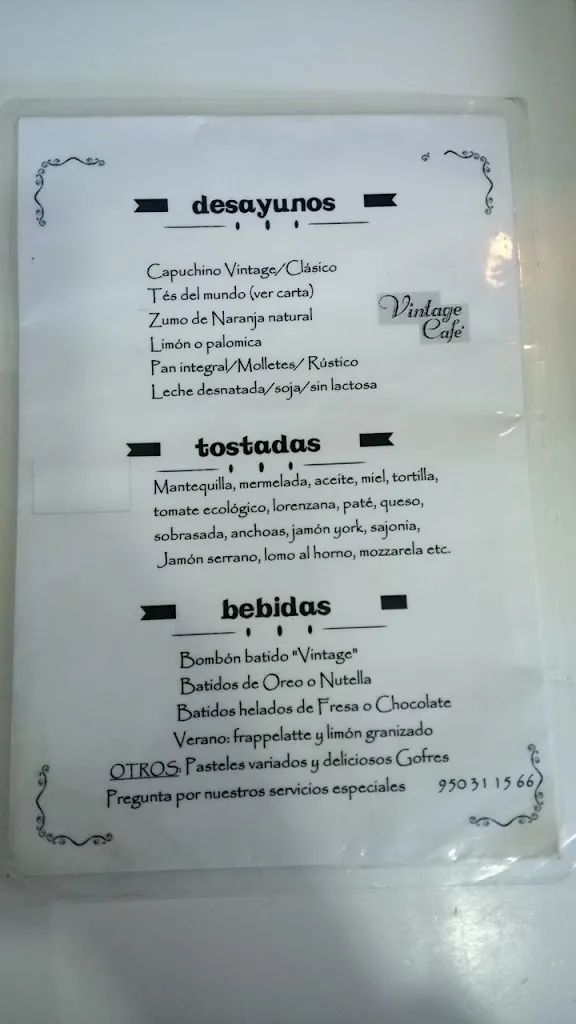 desayunos
Capuchino Vintage/Clásico
Tés del mundo (ver carta)
Zumo de Naranja natural
Limón o palomica
Pan integral/Molletes/ Rústico
Leche desnatada/soja/sin lactosa
Vintage
Café
tostadas
Mantequilla, mermelada, aceite, miel, tortilla,
tomate ecológico, lorenzana, paté, queso,
sobrasada, anchoas, jamón york, sajonia,
Jamón serrano, lomo al horno, mozzarela etc.
bebidas
Bombón batido "Vintage"
Batidos de Oreo o Nutella
Batidos helados de Fresa o Chocolate
Verano: frappelatte y limón granizado
OTROS: Pasteles variados y deliciosos Gofres
Pregunta por nuestros servicios especiales 950 31 15 66